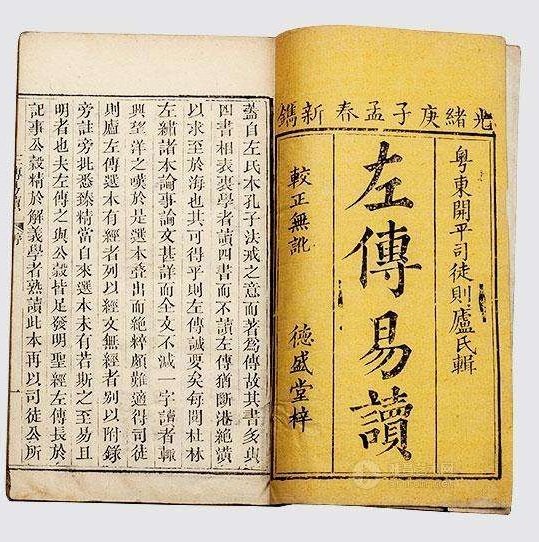 光緒庚子孟春新鐫
粵東開平司徒則廬氏輯
左傳易讀
較正無訛 德盛堂梓
蓋自左氏本孔子法戒之意而著為傳故其書多與
四書相表裏學者讀四書而不讀左傳猶斷港絕潢
以求至於海也其可得乎則左傳誠要矣每閱杜林
左繡諸本論事論文甚詳而全文不減一字讀者輒
興望洋之嘆於是選本疊出而絕粹頗難適得司徒
則廬左傳選本有經者列以經文無經者別以附錄
旁註旁批悉臻精當自來選本未有若斯之至易且
明者也夫左傳之與公穀皆足發明聖經左傳長於
記事公穀精於解義學者熟讀此本再以司徒公所